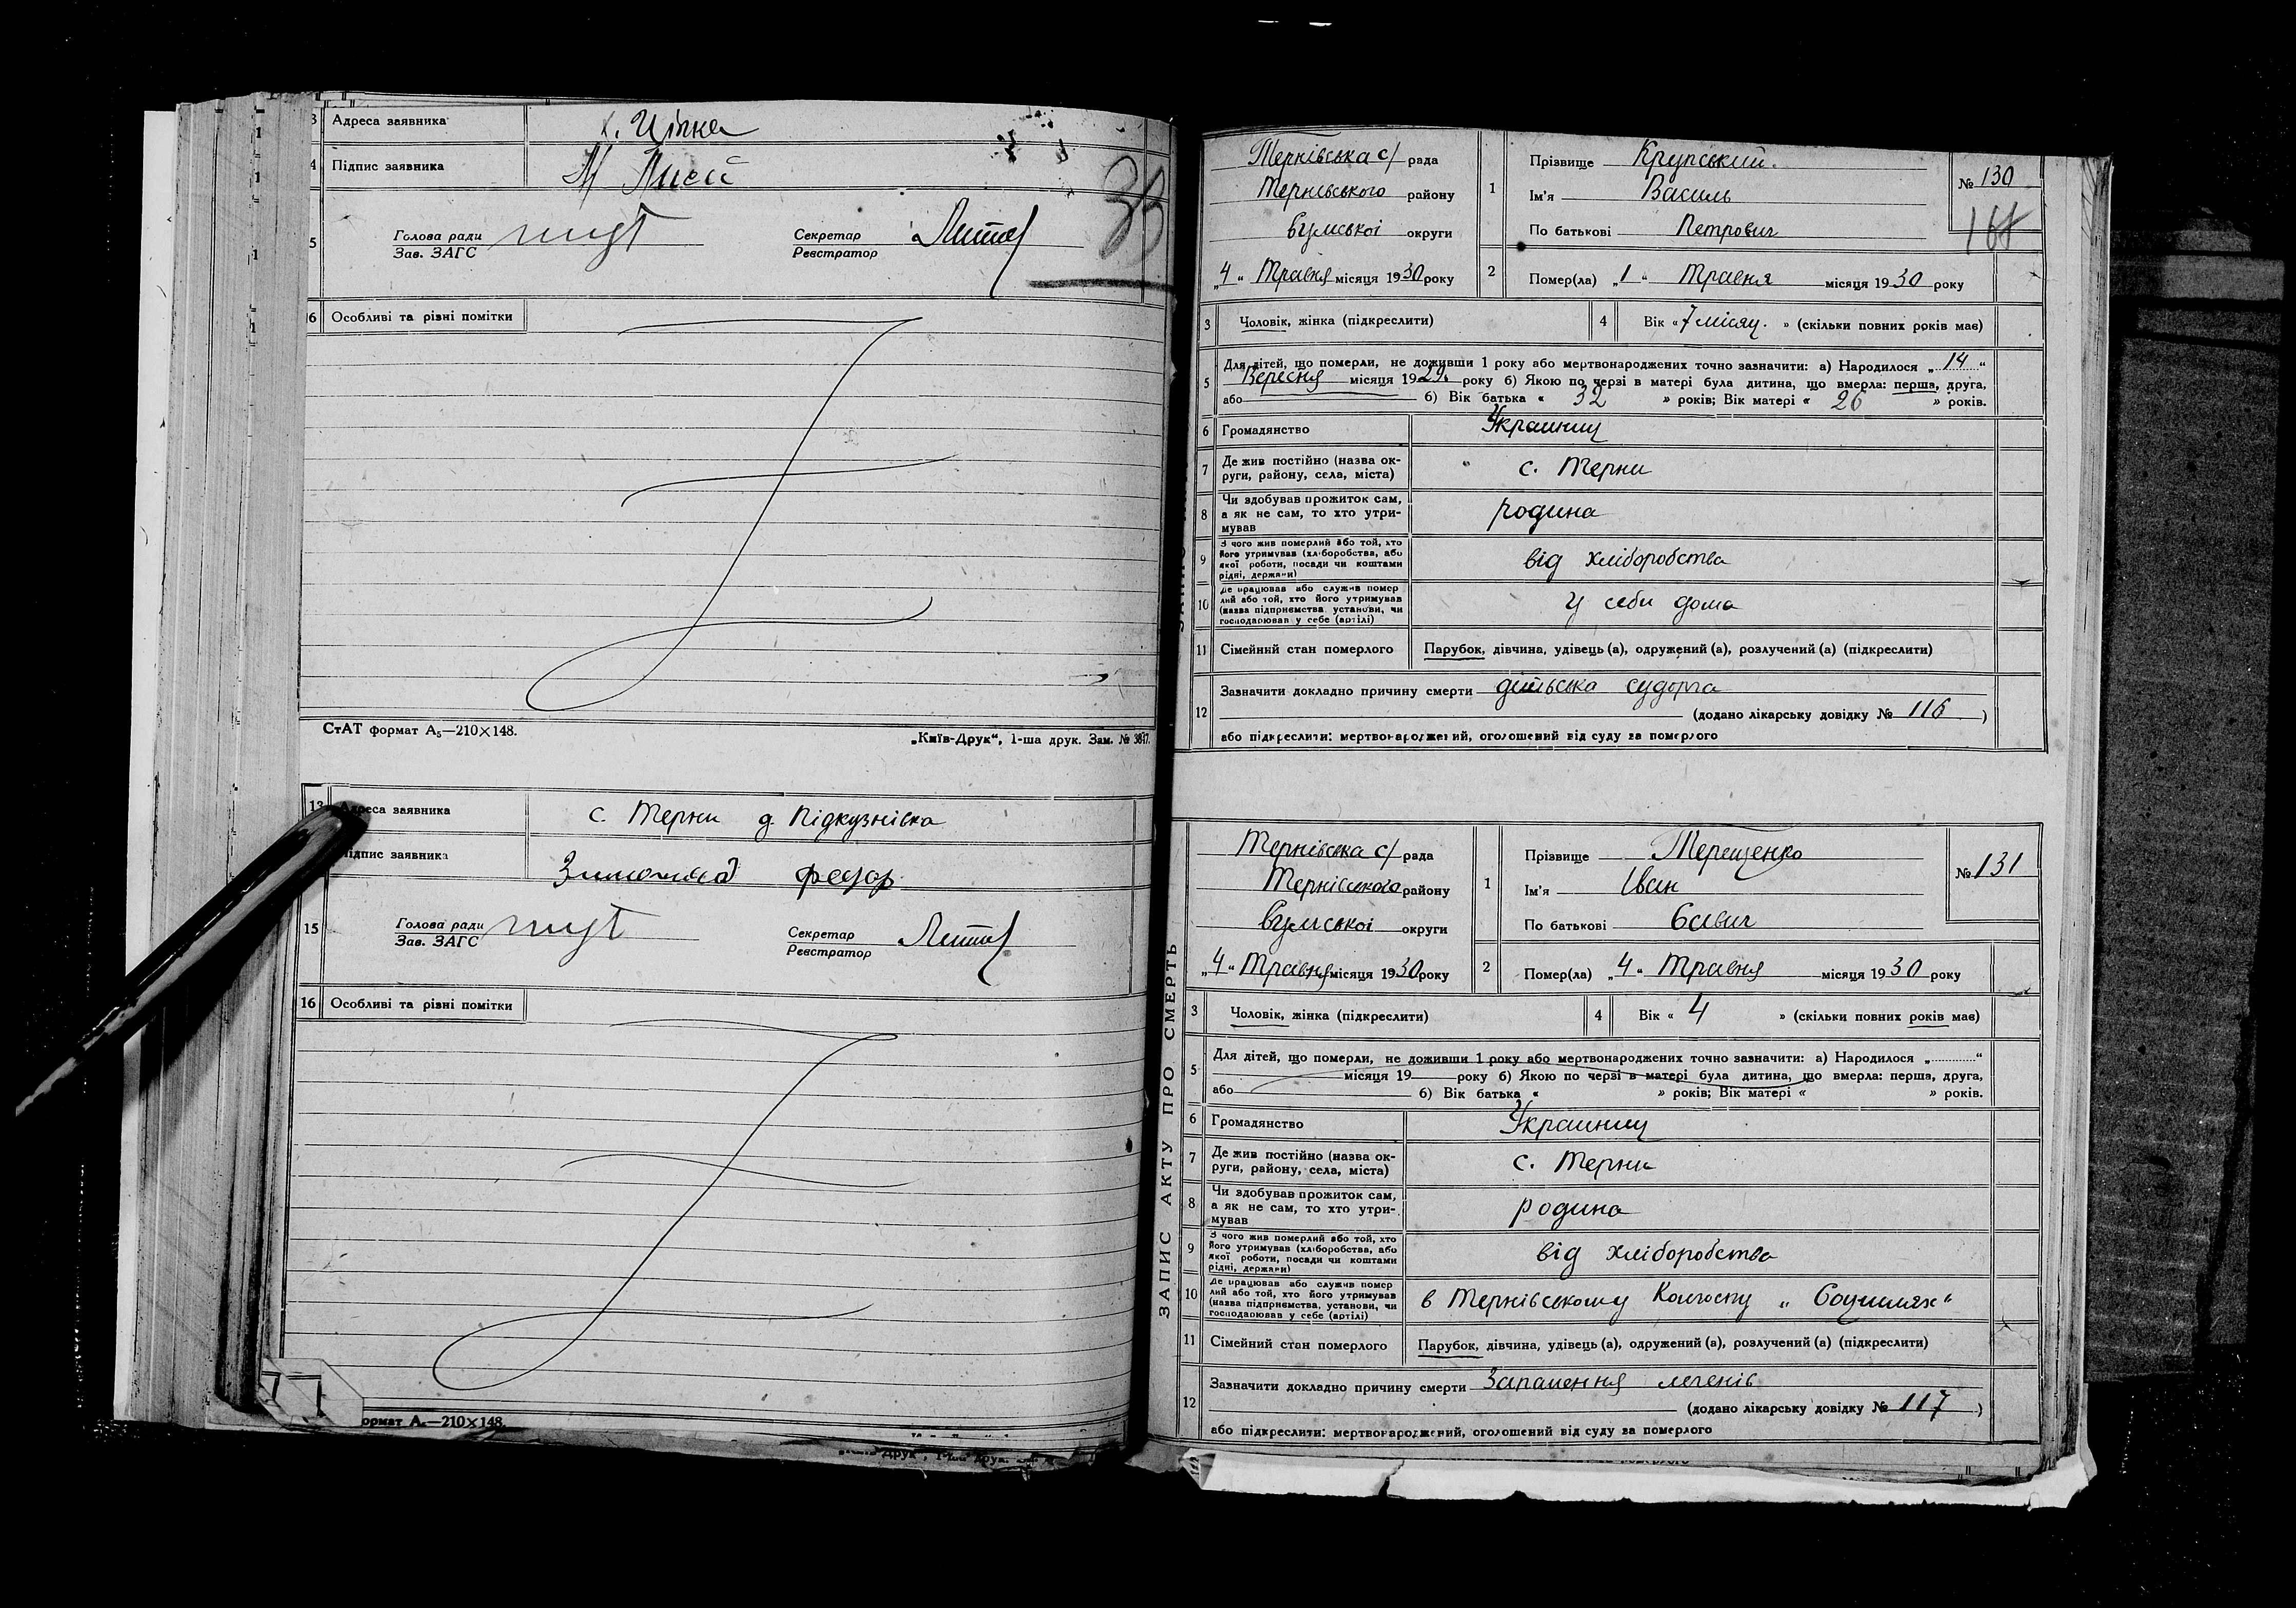 13 Адреса заявника х. Ціпка
14 Підпис заявника М Лисей
15 Голова ради Зав. ЗАГС Секретар Реєстратор
33
16 Особливі та різні помітки
СтАТ формат А₅—210×148. „Київ-Друк“, 1-ша друк. Зам. № 3847.
13 Адреса заявника с. Терни д. Підкузнівка
Підпис заявника федор
15 Голова ради Зав. ЗАГС Секретар Реєстратор
16 Особливі та різні помітки
формат А₅—210×148.
Друк“, 1-ша друк.
Тернівська с/ рада
Тернівського району
Сумської округи
„4“ Травня місяця 1930 року
1 Прізвище Крупський.
Ім'я Василь
По батькові Петрович
№ 130
2 Помер(ла) „1“ Травня місяця 1930 року
3 Чоловік, жінка (підкреслити) 4 Вік «7 місяц.» (скільки повних років має)
5 Для дітей, що померли, не доживши 1 року або мертвонароджених точно зазначити: а) Народилося „14“
Вересня місяця 1929. року б) Якою по черзі в матері була дитина, що вмерла: перша, друга,
або б) Вік батька «32» років; Вік матері «26» років.
6 Громадянство Украинец
7 Де жив постійно (назва ок-
руги, району, села, міста) с. Терни
8 Чи здобував прожиток сам,
а як не сам, то хто утри-
мував родина
9 З чого жив померлий або той, хто
його утримував (хліборобства, або
якої роботи, посади чи коштами
рідні, держави) від хліборобства
10 Де працював або служив помер
лий або той, хто його утримував
(назва підприємства, установи, чи
господарював у себе (артілі) у себи дома
11 Сімейний стан померлого Парубок, дівчина, удівець (а), одружений (а), розлучений (а) (підкреслити)
12 Зазначити докладно причину смерти дитьська судорга
(додано лікарську довідку № 116)
або підкреслити: мертвонароджений, оголошений від суду за померлого
ЗАПИС АКТУ ПРО СМЕРТЬ
Тернівська с/ рада
Тернівського району
Сумської округи
„4“ Травня місяця 1930 року
1 Прізвище Терещенко
Ім'я Іван
По батькові
№ 131
2 Помер(ла) „4“ Травня місяця 1930 року
3 Чоловік, жінка (підкреслити) 4 Вік «4» (скільки повних років має)
5 Для дітей, що померли, не доживши 1 року або мертвонароджених точно зазначити: а) Народилося „ “
місяця 19 року б) Якою по черзі в матері була дитина, що вмерла: перша, друга,
або б) Вік батька « » років; Вік матері « » років.
6 Громадянство Украинец
7 Де жив постійно (назва ок-
руги, району, села, міста) с. Терни
8 Чи здобував прожиток сам,
а як не сам, то хто утри-
мував родина
9 З чого жив померлий або той, хто
його утримував (хліборобства, або
якої роботи, посади чи коштами
рідні, держави) від хліборобства
10 Де працював або служив помер
лий або той, хто його утримував
(назва підприємства, установи, чи
господарював у себе (артілі) в Тернівському Колгоспу „Соцшлях“
11 Сімейний стан померлого Парубок, дівчина, удівець (а), одружений (а), розлучений (а) (підкреслити)
12 Зазначити докладно причину смерти Запалення легенів
(додано лікарську довідку № 117)
або підкреслити: мертвонароджений, оголошений від суду за померлого